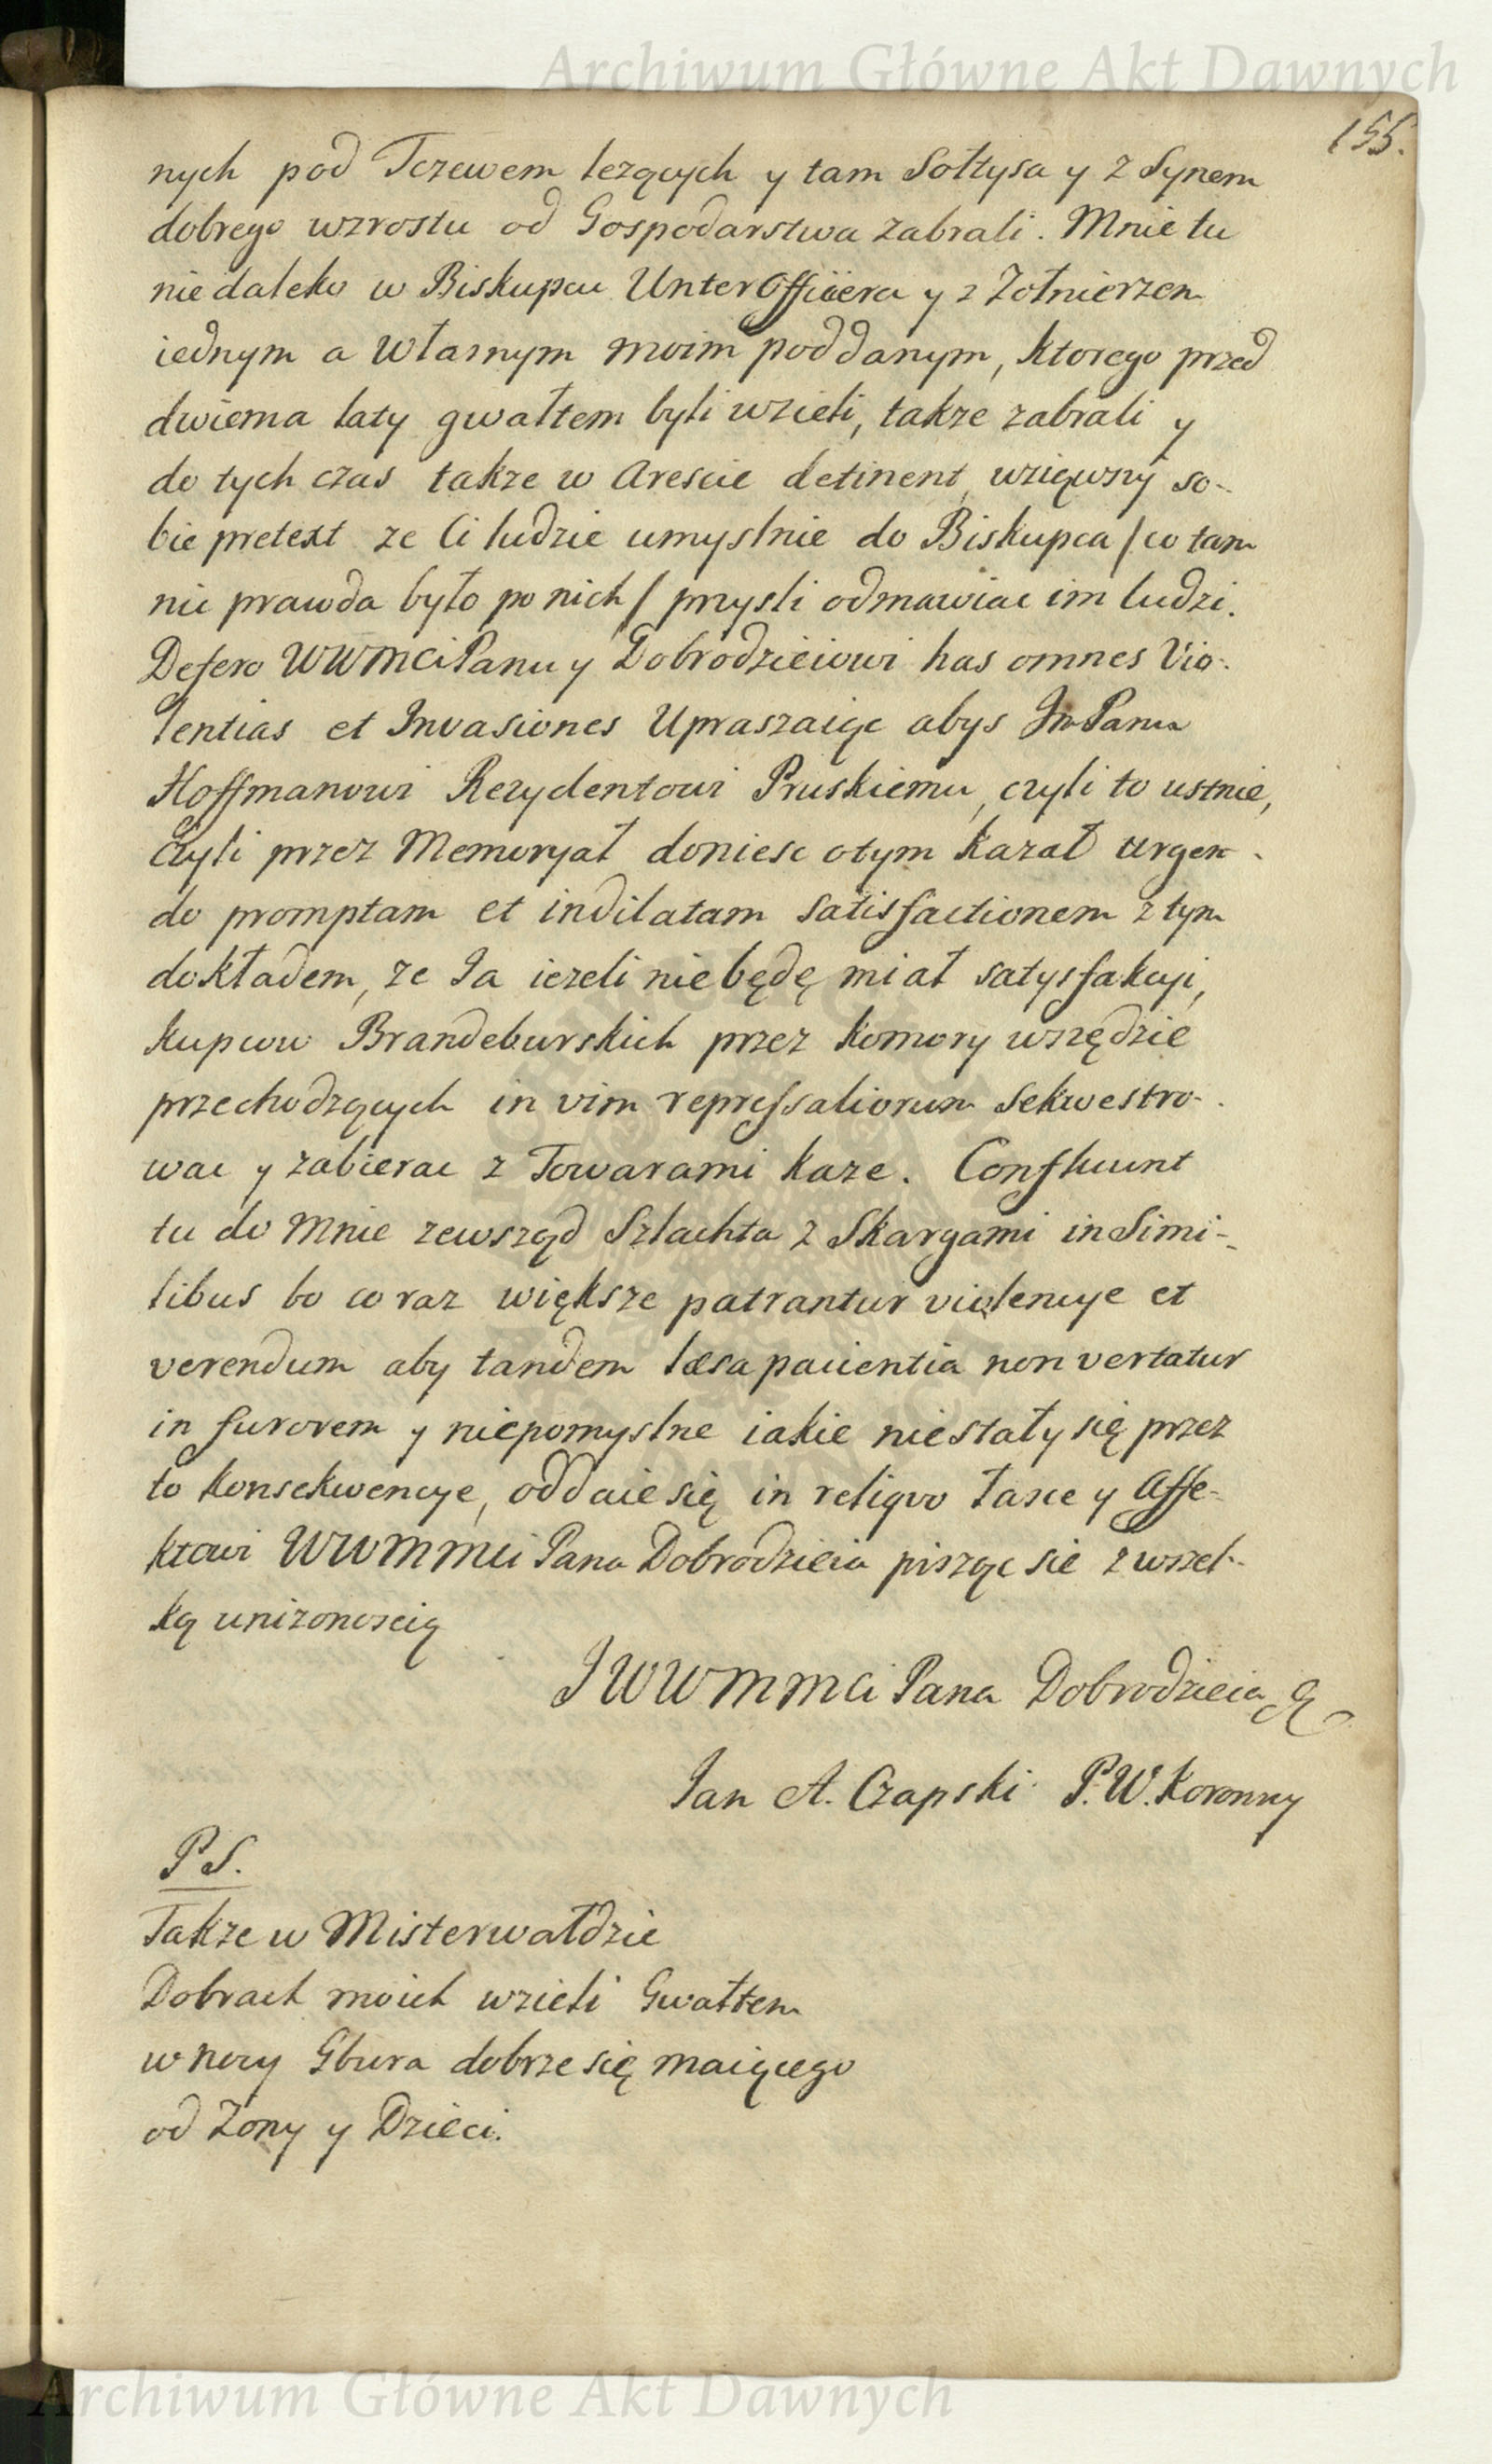 Archiwum Główne Akt Dawnych
155.
nych pod Tczewem lezących y tam Sołtysa y z Synem
dobrego wzrostu od Gospodarstwa zabrali. Mnie tu
nie daleko w Biskupcu Unter Officiera y z Zołnierzem
iednym a Własnym moim poddanym, ktorego przed
dwiema laty gwałtem byli wzieli, takze zabrali y
do tych czas takze w Areście detinent, wziąwszy so-
bie pretext ze Ci ludzie umyslnie do Biskupca / co tam
nie prawda było po nich / przysli odmawiac im ludzi.
Defero WWMCi Panu y Dobrodzieiowi has omnes Vio-
lentias et Invasiones Upraszaiąc abys Jm Panu
Hoffmanowi Rezydentowi Pruskiemu, czyli to ustnie,
czyli przez Memoryał doniesc otym kazał urgen-
do promptam et indilatam satisfactionem z tym
dokładem, ze Ja iezeli nie będę miał satysfakcyi,
kupcow Brandeburskich przez komory wszędzie
przechodzących in vim repressaliorum Sekwestro-
wac y zabierac z Towarami kaze. Confluunt
tu do Mnie zewsząd Szlachta z Skargami in Simi-
libus bo co raz większe patrantur violencye et
verendum aby tandem læsa pacientia non vertatur
in furorem y niepomyslne iakie niestały się przez
to konsekwencye, oddaie się in reliquo łasce y Affe-
ktowi WWMMCi Pana Dobrodzieia pisząc sie z wszel-
ką unizonoscią
JWWMMCi Pana Dobrodzieia &
Jan A. Czapski P. W. Koronny
PS.
Takze w Misterwałdzie
Dobrach moich wzieli Gwałtem
w nocy Gbura dobrze się maiącego
od Zony y Dzieci.
Archiwum Główne Akt Dawnych